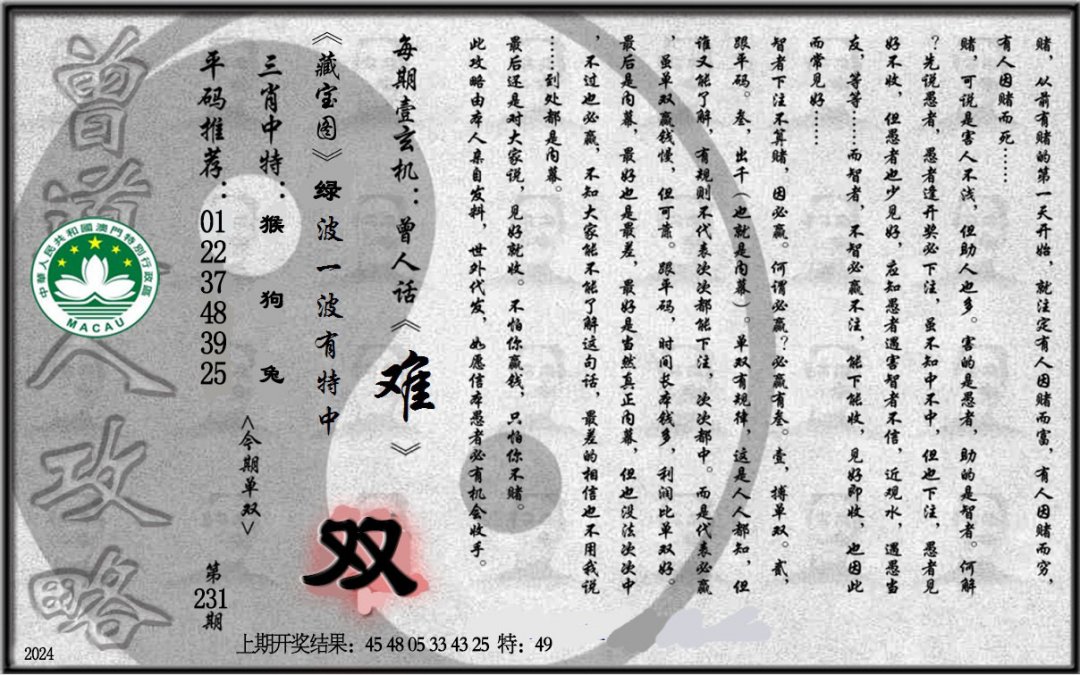 赌，从前有赌的第一天开始，就注定有人因赌而富，有人因赌而穷，
有人因赌而死……
赌，可说是害人不浅，但助人也多。害的是愚者，助的是智者。何解
？先说愚者，愚者逢开奖必下注，虽不知中不中，但也下注，愚者见
好不收，但愚者也少见好，应知愚者遇害智者不信，近观水，遇愚当
友，等等……而智者，不智必赢不注，能下能收，见好即收，也因此
而常见好……
智者下注不算赌，因必赢。何谓必赢？必赢有叁。壹，搏单双。贰，
跟平码。叁，出千（也就是内幕）。单双有规律，这是人人都知，但
谁又能了解，有规则不代表次次都能下注，次次都中。而是代表必赢
，虽单双赢钱慢，但可靠。跟平码，时间长本钱多，利润比单双好。
最后是内幕，最好也是最差，最好是当然真正内幕，但也没法次次中
，不过也必赢，不知大家能不能了解这句话，最差的相信也不用我说
……到处都是内幕。
最后还是对大家说，见好就收。不怕你赢钱，只怕你不赌。
此攻略由本人亲自发料，世外代发，如愿信本愚者必有机会收手。
每期壹玄机：曾人话《难》
《藏宝图》绿波一波有特中
双
三肖中特：猴 狗 兔
<今期单双>
平码推荐：01 22 37 48 39 25
第231期
曾道人攻略
中華人民共和國澳門特別行政區
MACAU
上期开奖结果：45 48 05 33 43 25 特：49
2024